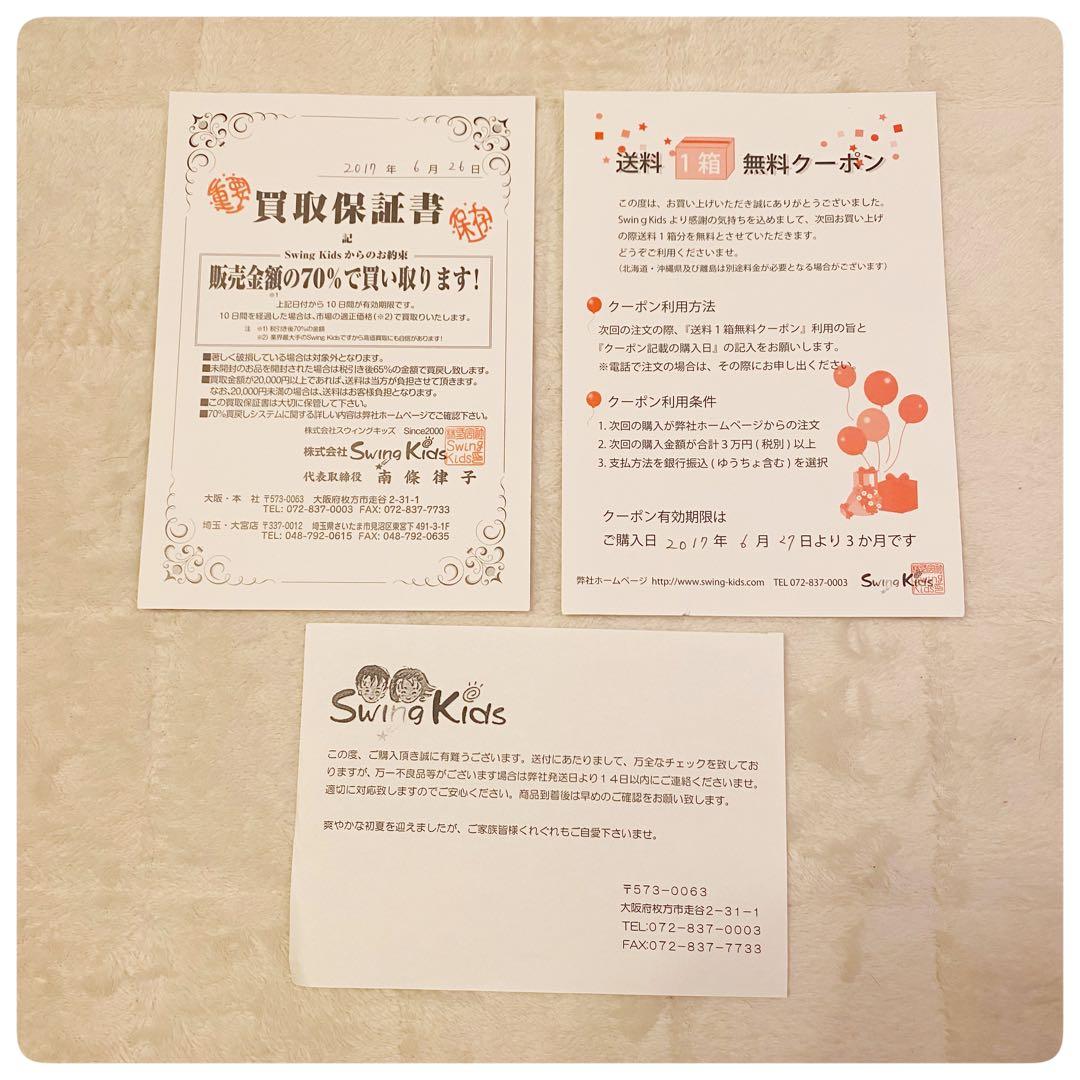 2017 年 6 月 26 日
重要
買取保証書
保存
記
Swing Kids からのお約束
販売金額の70%で買い取ります!
※1
上記日付から10日間が有効期限です。
10日間を経過した場合は、市場の適正価格(※2)で買取りいたします。
注 ※1) 税引き後70%の金額
※2) 業界最大手のSwing Kidsですから高価買取にも自信があります!
■著しく破損している場合は対象外となります。
■未開封のお品を開封された場合は税引き後65%の金額で買戻し致します。
■買取金額が20,000円以上であれば、送料は当方が負担させて頂きます。
なお、20,000円未満の場合は、送料はお客様負担となります。
■この買取保証書は大切に保管して下さい。
■70%買戻しシステムに関する詳しい内容は弊社ホームページでご確認下さい。
株式会社スウィングキッズ Since2000
株式会社 Swing Kids
代表取締役 南條律子
大阪・本 社 〒573-0063 大阪府枚方市走谷2-31-1
TEL: 072-837-0003 FAX: 072-837-7733
埼玉・大宮店 〒337-0012 埼玉県さいたま市見沼区東宮下491-3-1F
TEL: 048-792-0615 FAX: 048-792-0635
送料 1箱 無料クーポン
この度は、お買い上げいただき誠にありがとうございました。
Swing Kids より感謝の気持ちを込めまして、次回お買い上げ
の際送料1箱分を無料とさせていただきます。
どうぞご利用くださいませ。
(北海道・沖縄県及び離島は別途料金が必要となる場合がございます)
クーポン利用方法
次回の注文の際、『送料1箱無料クーポン』利用の旨と
『クーポン記載の購入日』の記入をお願いします。
※電話で注文の場合は、その際にお申し出ください。
クーポン利用条件
1. 次回の購入が弊社ホームページからの注文
2. 次回の購入金額が合計3万円(税別)以上
3. 支払方法を銀行振込(ゆうちょ含む)を選択
クーポン有効期限は
ご購入日 2017 年 6 月 27 日より3か月です
弊社ホームページ http://www.swing-kids.com TEL 072-837-0003 Swing Kids
Swing Kids
この度、ご購入頂き誠に有難うございます。送付にあたりまして、万全なチェックを致してお
りますが、万一不良品等がございます場合は弊社発送日より14日以内にご連絡くださいませ。
適切に対応致しますのでご安心ください。商品到着後は早めのご確認をお願い致します。
爽やかな初夏を迎えましたが、ご家族皆様くれぐれもご自愛下さいませ。
〒573-0063
大阪府枚方市走谷2-31-1
TEL:072-837-0003
FAX:072-837-7733